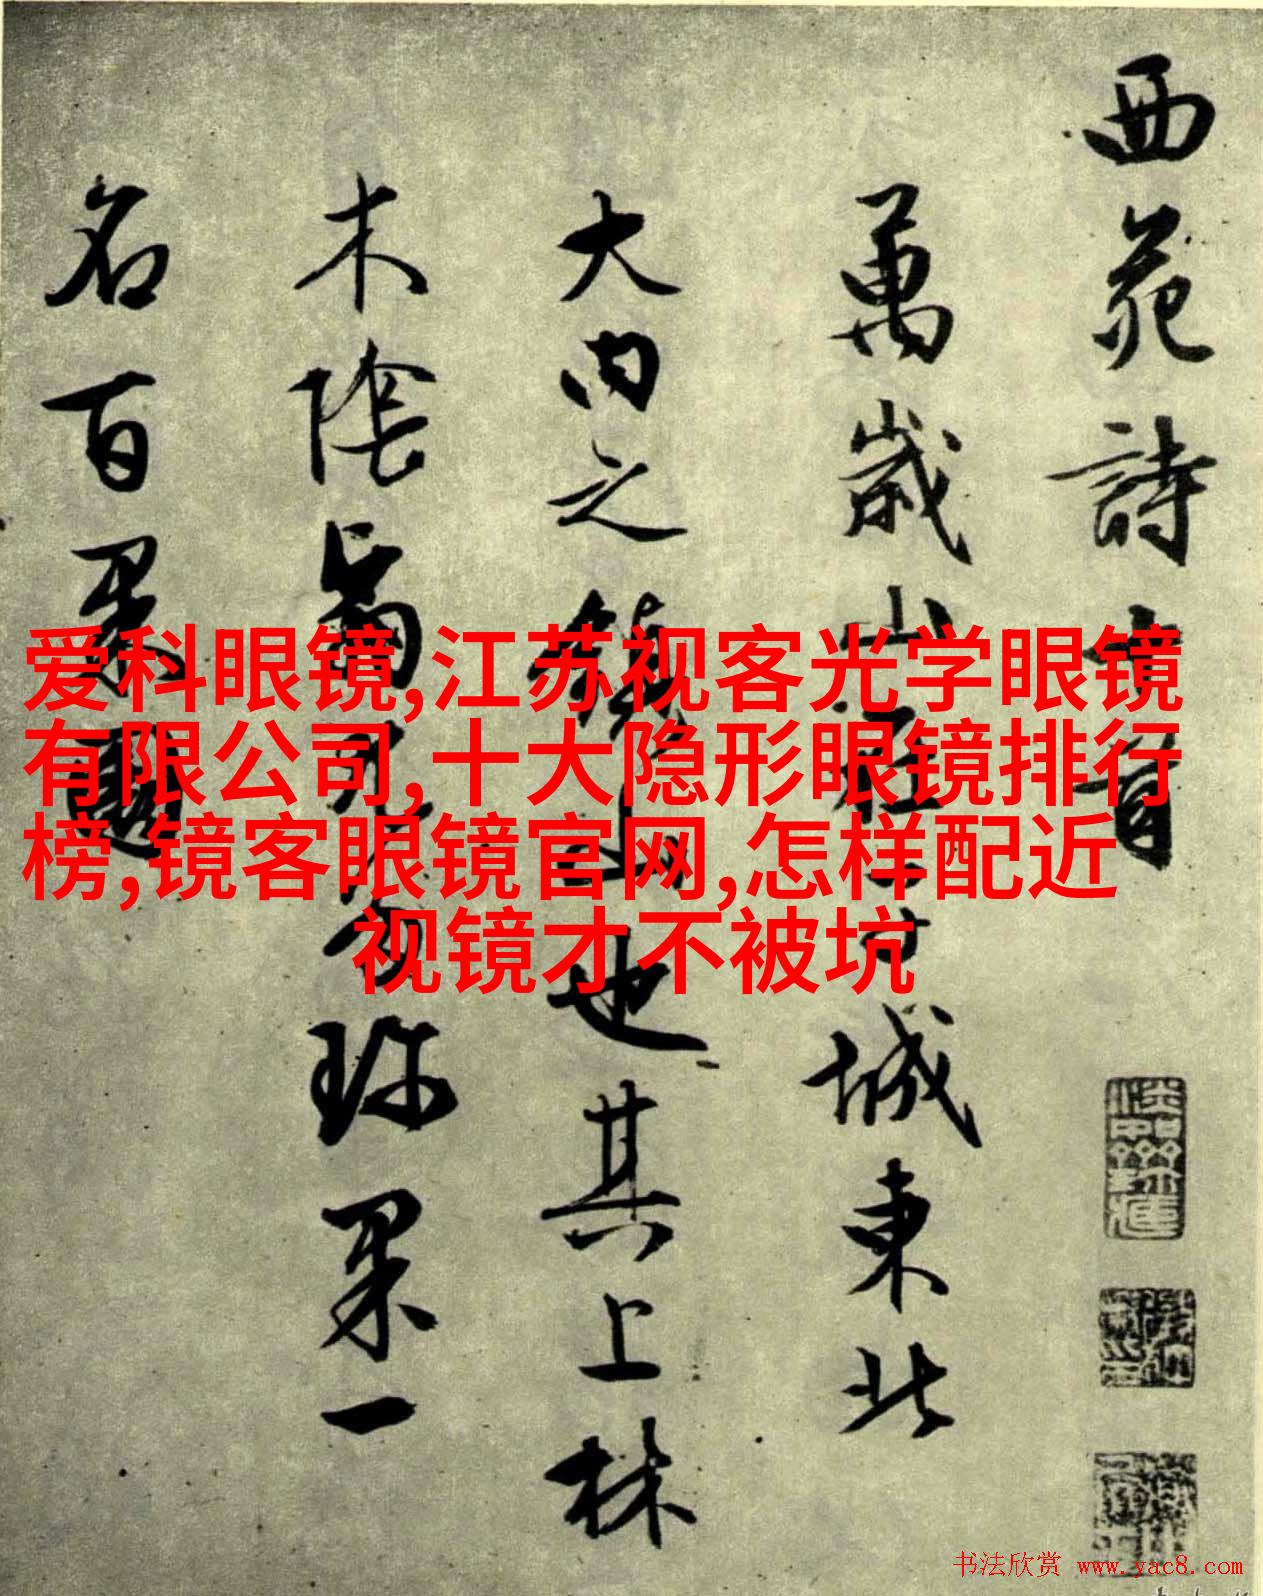 西苑詩十首
萬歲山在子城東北
大内之鎮山也其上林
木陰翳尤多珍果一
名百果園
爱科眼镜,江苏视客光学眼镜
有限公司,十大隐形眼镜排行
榜,镜客眼镜官网,怎样配近
视镜才不被坑
书法欣赏 www.yac8.com